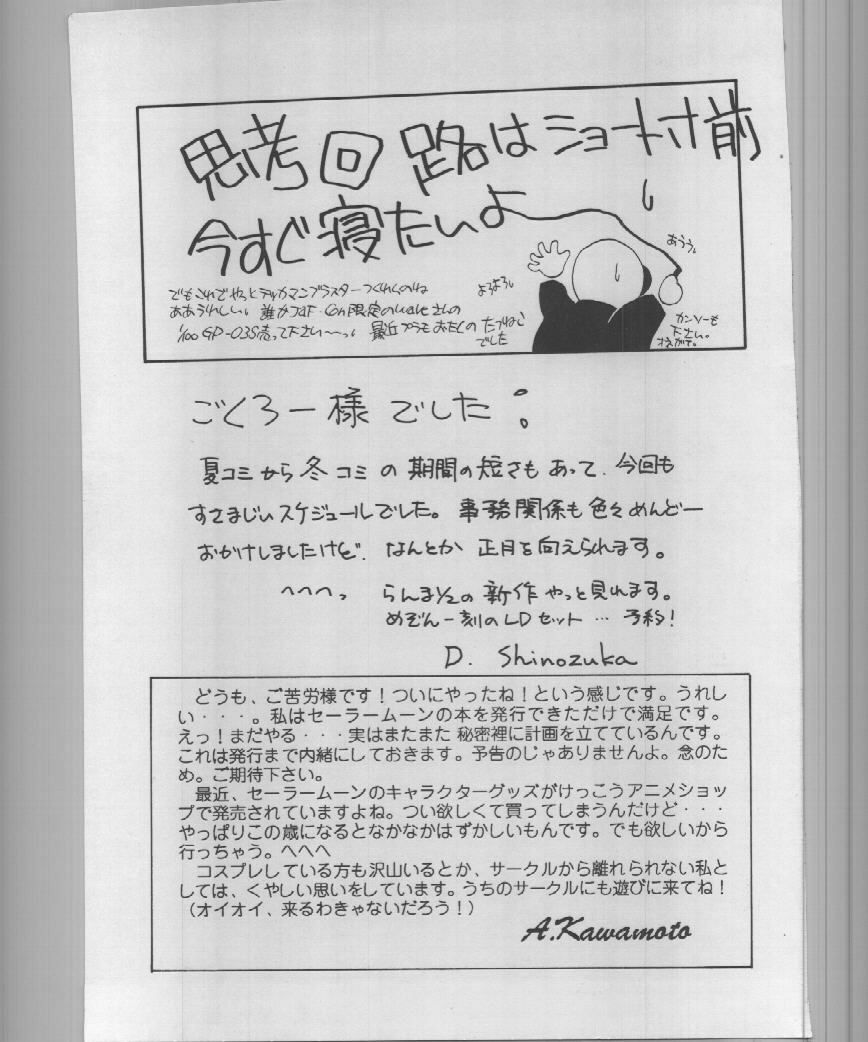 思考回路はショート寸前
今すぐ寝たいよ
でもこれでやっとテッカマンブラスターつくれるのね
ああうれしい。誰かJAF・CON限定のwaveさんの
1/100 GP-03S売って下さい〜っ。最近プラモおたくの
でした
よろよろ。
あうう。
カンソーも
下さい。
ごくろー様でした。
夏コミから冬コミの期間の短さもあって、今回も
すさまじいスケジュールでした。事務関係も色々めんどー
おかけしましたけど、なんとか正月を向えられます。
へへへっ らんま1/2の新作やっと見れます。
めぞん一刻のLDセット…予約!
D. Shinozuka
どうも、ご苦労様です！ついにやったね！という感じです。うれし
い・・・。私はセーラームーンの本を発行できただけで満足です。
えっ！まだやる・・・実はまたまた秘密裡に計画を立てているんです。
これは発行まで内緒にしておきます。予告のじゃありませんよ。念のた
め。ご期待下さい。
最近、セーラームーンのキャラクターグッズがけっこうアニメショッ
プで発売されていますよね。つい欲しくて買ってしまうんだけど・・・
やっぱりこの歳になるとなかなかはずかしいもんです。でも欲しいから
行っちゃう。へへへ
コスプレしている方も沢山いるとか、サークルから離れられない私と
しては、くやしい思いをしています。うちのサークルにも遊びに来てね！
（オイオイ、来るわきゃないだろう！）
A.Kawamoto